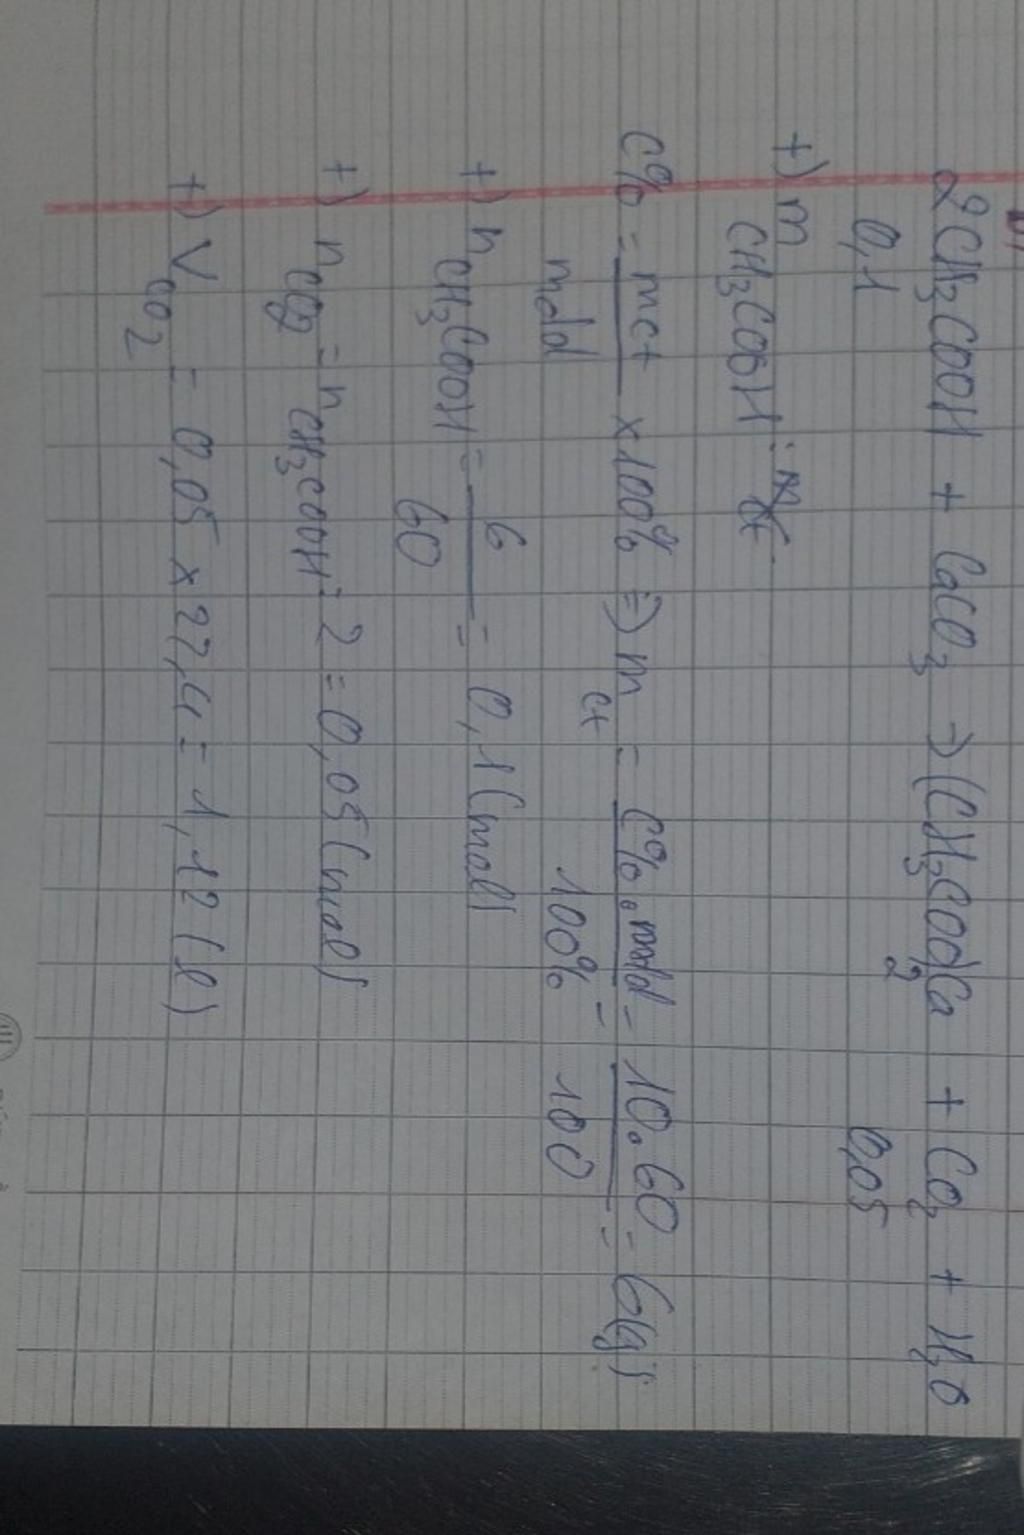 2CH₃COOH + CaCO₃ → (CH₃COO)₂Ca + CO₂ + H₂O
0,1 0,05
+) m CH₃COOH:
C% = mct / mdd x 100% => m ct = C%.mdd / 100% = 10.60 / 100 = 6(g)
+) n CH₃COOH = 6 / 60 = 0,1 (mol)
+) n CO₂ = n CH₃COOH : 2 = 0,05 (mol)
+) V CO₂ = 0,05 x 22,4 = 1,12 (l)